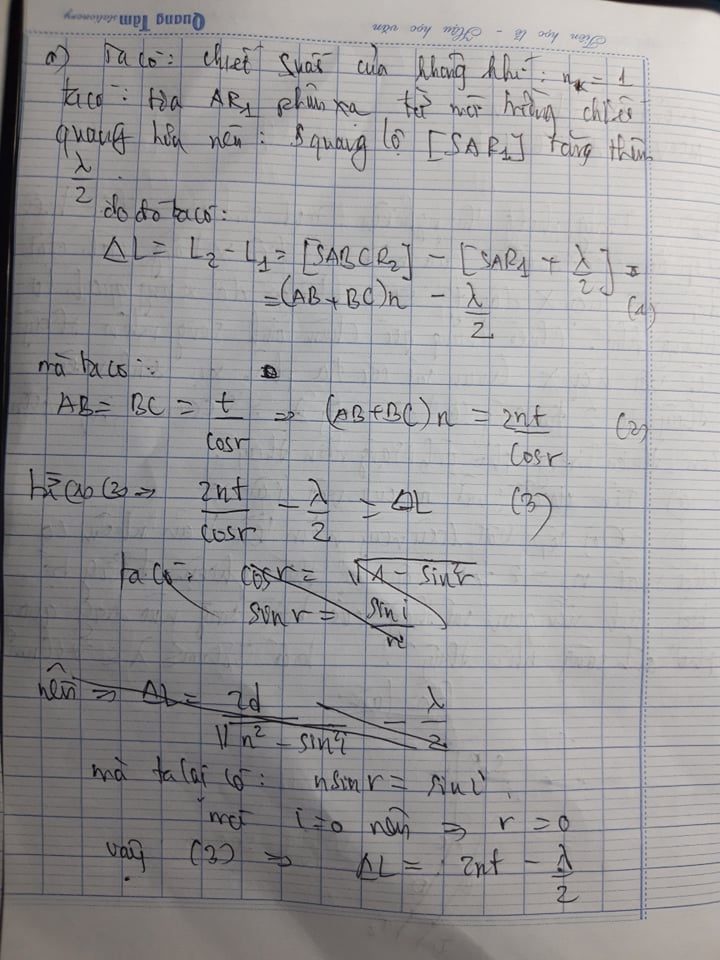 Tiên học lễ - Hậu học văn
Quang Tâm stationery
a) Ta có: chiết suất của không khí: nₖ = 1
ta có: tia AR₁ phản xạ từ môi trường chiết
quang hơn nên: quang lộ [SAR₁] tăng thêm
λ/2.
do đó ta có:
ΔL = L₂ - L₁ = [SABCR₂] - [SAR₁ + λ/2] =
= (AB + BC)n - λ/2 (1)
mà ta có:
AB = BC = t/cosr ⇒ (AB+BC)n = 2nt/cosr (2)
từ (1)(2) ⇒ 2nt/cosr - λ/2 = ΔL (3)
ta có: cosr = √(1 - sin²r)
sinr = sini/n
nên ⇒ ΔL = 2d/√(n² - sin²i) - λ/2
mà ta lại có: nsinr = sini
mà i=0 nên ⇒ r = 0
vậy (3) ⇒ ΔL = 2nt - λ/2